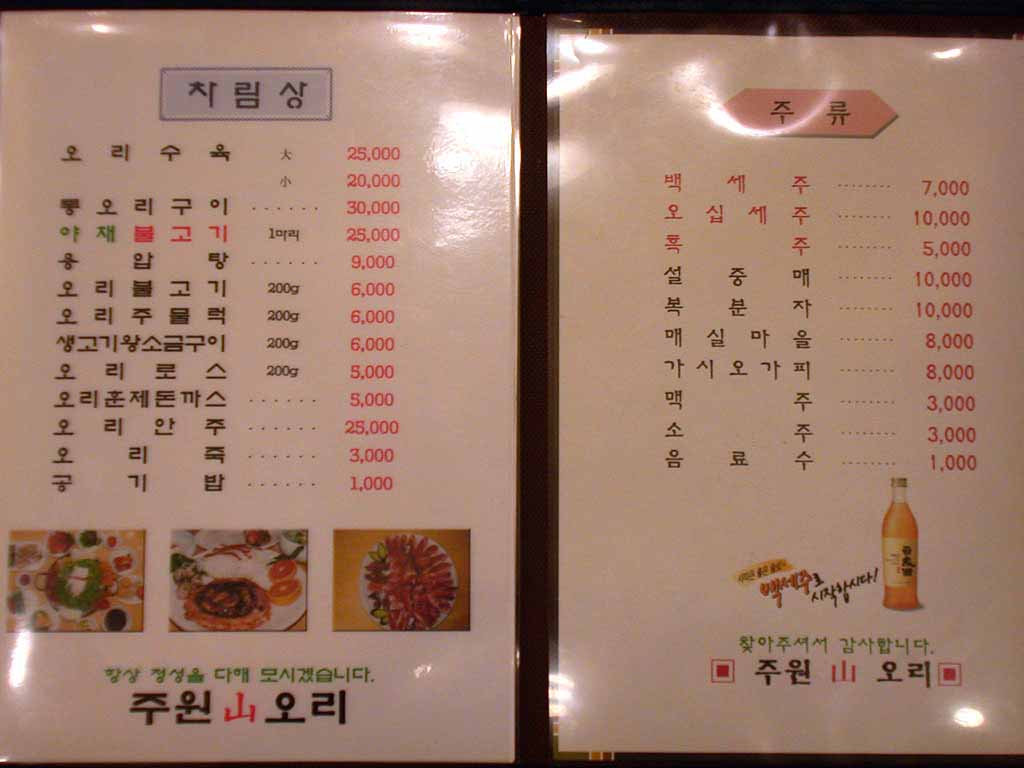 차림상
오리수육 大 25,000
小 20,000
통오리구이 ...... 30,000
야채불고기 1마리 25,000
용압탕 ...... 9,000
오리불고기 200g 6,000
오리주물럭 200g 6,000
생고기왕소금구이 200g 6,000
오리로스 200g 5,000
오리훈제돈까스 ...... 5,000
오리안주 ...... 25,000
오리죽 ...... 3,000
공기밥 ...... 1,000
항상 정성을 다해 모시겠습니다.
주원山오리
주류
백세주 ........ 7,000
오십세주 ........ 10,000
흑주 ........ 5,000
설중매 ........ 10,000
복분자 ........ 10,000
매실마을 ........ 8,000
가시오가피 ........ 8,000
맥주 ........ 3,000
소주 ........ 3,000
음료수 ........ 1,000
백세주로
시작합시다!
찾아주셔서 감사합니다.
주원 山 오리